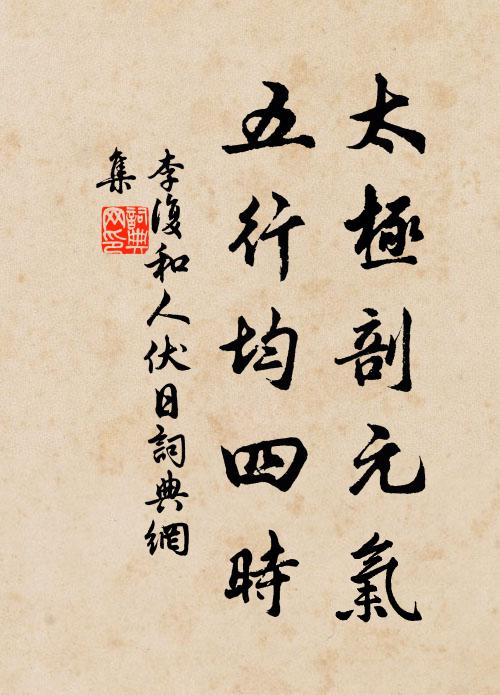 太極剖元氣
五行均四時
李復和人伏日詞典網
集
詞典
网印